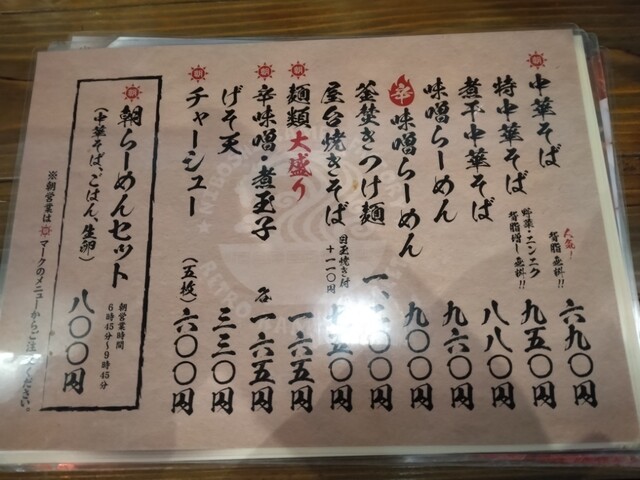 朝 中華そば 六九〇円
大人気!
背脂無料!!
特中華そば 九五〇円
野菜・ニンニク
背脂増し無料!!
煮干中華そば 八八〇円
味噌らーめん 九六〇円
辛 味噌らーめん 九〇〇円
釜焚きつけ麺 一、 〇〇円
屋台焼きそば 五〇円
目玉焼き付
+一一〇円
朝 麺類大盛り 一六五円
朝 辛味噌・煮玉子 各一六五円
げそ天 三三〇円
朝 チャーシュー (五枚) 六〇〇円
朝らーめんセット
(中華そば、ごはん、生卵) 八〇〇円
朝営業時間
6時45分~9時45分
※朝営業は マークのメニューからご注文ください。